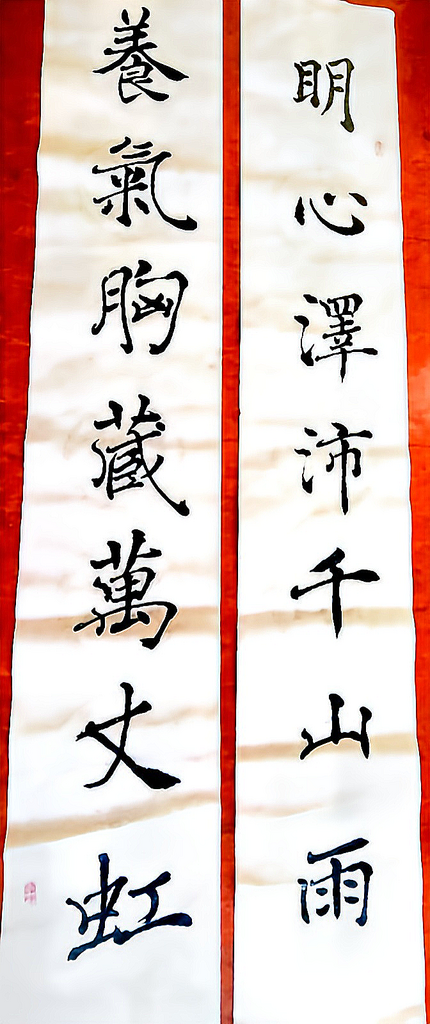 明心澤沛千山雨
養氣胸藏萬丈虹